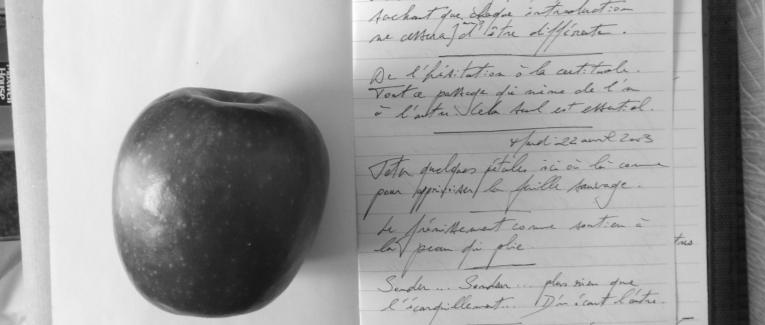 Sachant que chaque introduction
ne cessera d'être différente.
De l'hésitation à la certitude.
Tout ce passage qui mène de l'un
à l'autre cela seul est essentiel.
22 avril 2003
Jeter quelques pétales ici où là comme
pour apprivoiser la feuille sauvage.
Le frémissement comme soutien à
la peau qui plie.
Sonder... Sonder... plus rien que
l'écarquillement... D'un écart l'autre.